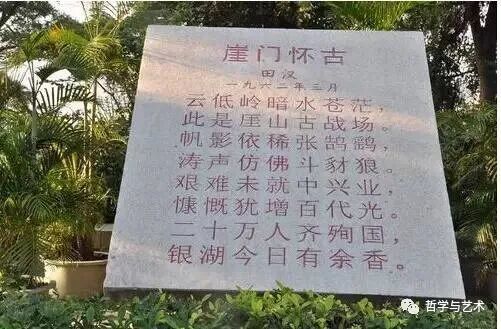 崖门怀古
田汉
一九六二年三月
云低岭暗水苍茫，
此是崖山古战场。
帆影依稀张鹄鹞，
涛声仿佛斗豺狼。
艰难未就中兴业，
慷慨犹增百代光。
二十万人齐殉国，
银湖今日有余香。
哲学与艺术